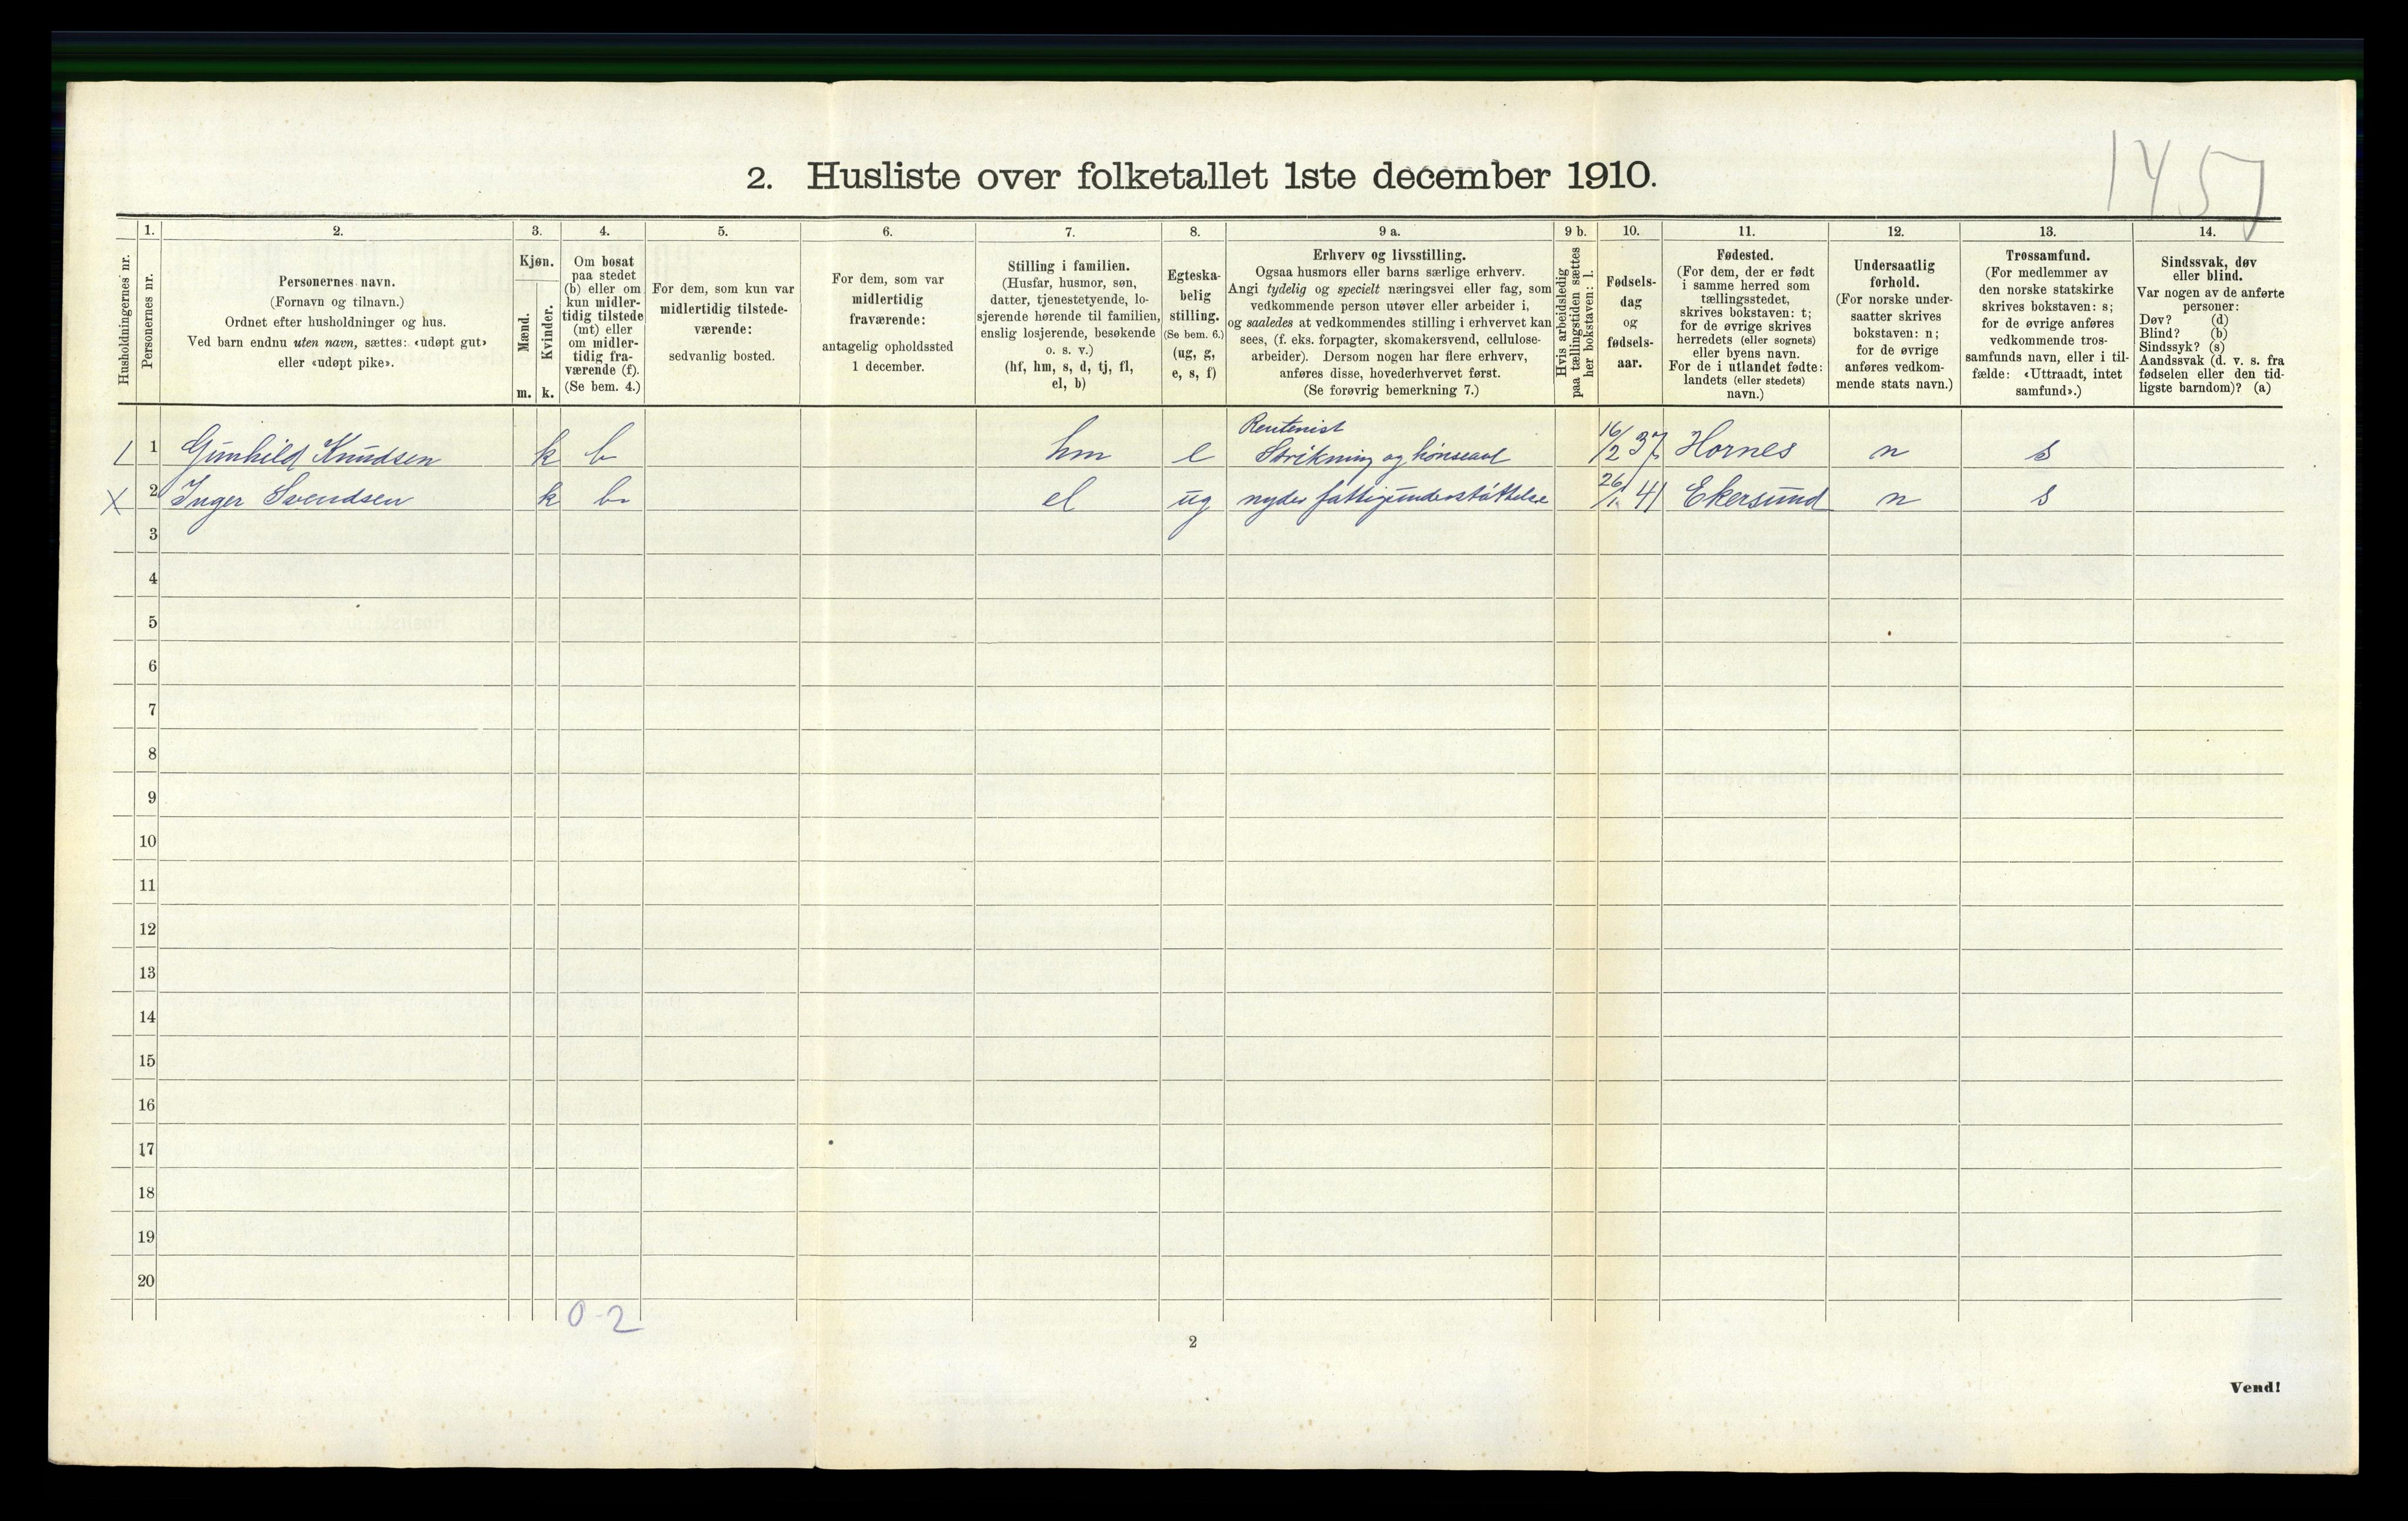 1457
2. Husliste over folketallet 1ste december 1910.
Husholdningernes nr.
1.
Personernes nr.
2.
Personernes navn.
(Fornavn og tilnavn.)
Ordnet efter husholdninger og hus.
Ved barn endnu uten navn, sættes: «udøpt gut»
eller «udøpt pike».
3.
Kjøn.
Mænd.
Kvinder.
m. k.
4.
Om bosat
paa stedet
(b) eller om
kun midler-
tidig tilstede
(mt) eller
om midler-
tidig fra-
værende (f).
(Se bem. 4.)
5.
For dem, som kun var
midlertidig tilstede-
værende:
sedvanlig bosted.
6.
For dem, som var
midlertidig
fraværende:
antagelig opholdssted
1 december.
7.
Stilling i familien.
(Husfar, husmor, søn,
datter, tjenestetyende, lo-
sjerende hørende til familien,
enslig losjerende, besøkende
o. s. v.)
(hf, hm, s, d, tj, fl,
el, b)
8.
Egteska-
belig
stilling.
(Se bem. 6.)
(ug, g,
e, s, f)
9 a.
Erhverv og livsstilling.
Ogsaa husmors eller barns særlige erhverv.
Angi tydelig og specielt næringsvei eller fag, som
vedkommende person utøver eller arbeider i,
og saaledes at vedkommendes stilling i erhvervet kan
sees, (f. eks. forpagter, skomakersvend, cellulose-
arbeider). Dersom nogen har flere erhverv,
anføres disse, hovederhvervet først.
(Se forøvrig bemerkning 7.)
9 b.
Hvis arbeidsledig
paa tællingstiden sættes
her bokstaven: l.
10.
Fødsels-
dag
og
fødsels-
aar.
11.
Fødested.
(For dem, der er født
i samme herred som
tællingsstedet,
skrives bokstaven: t;
for de øvrige skrives
herredets (eller sognets)
eller byens navn.
For de i utlandet fødte:
landets (eller stedets)
navn.)
12.
Undersaatlig
forhold.
(For norske under-
saatter skrives
bokstaven: n;
for de øvrige
anføres vedkom-
mende stats navn.)
13.
Trossamfund.
(For medlemmer av
den norske statskirke
skrives bokstaven: s;
for de øvrige anføres
vedkommende tros-
samfunds navn, eller i til-
fælde: «Uttraadt, intet
samfund».)
14.
Sindssvak, døv
eller blind.
Var nogen av de anførte
personer:
Døv? (d)
Blind? (b)
Sindssyk? (s)
Aandssvak (d. v. s. fra
fødselen eller den tid-
ligste barndom)? (a)
Rentenist
1 Gunhild Knudsen k b hm e Strikning og hønseavl 16/2 37 Hornes n s
X 2 Inger Svendsen k b. el ug nyder fattigunderstøttelse 26/1. 41 Ekersund n s
3
4
5
6
7
8
9
10
11
12
13
14
15
16
17
18
19
20
0-2
2
Vend!